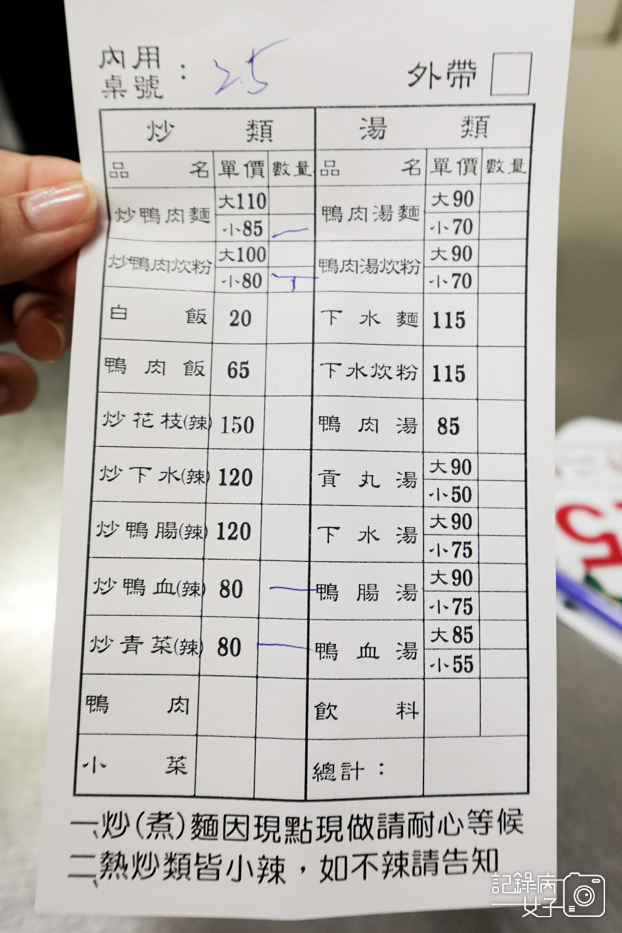 內用
桌號： 25 外帶
炒類 湯類
品名 單價 數量 品名 單價 數量
炒鴨肉麵 大110 鴨肉湯麵 大90
小85 一 小70
炒鴨肉炊粉 大100 鴨肉湯炊粉 大90
小80 小70
白飯 20 下水麵 115
鴨肉飯 65 下水炊粉 115
炒花枝(辣) 150 鴨肉湯 85
炒下水(辣) 120 貢丸湯 大90
小50
炒鴨腸(辣) 120 下水湯 大90
小75
炒鴨血(辣) 80 一 鴨腸湯 大90
小75
炒青菜(辣) 80 一 鴨血湯 大85
小55
鴨肉 飲料
小菜 總計：
一、炒(煮)麵因現點現做請耐心等候
二、熱炒類皆小辣，如不辣請告知
5
記錄病
女子